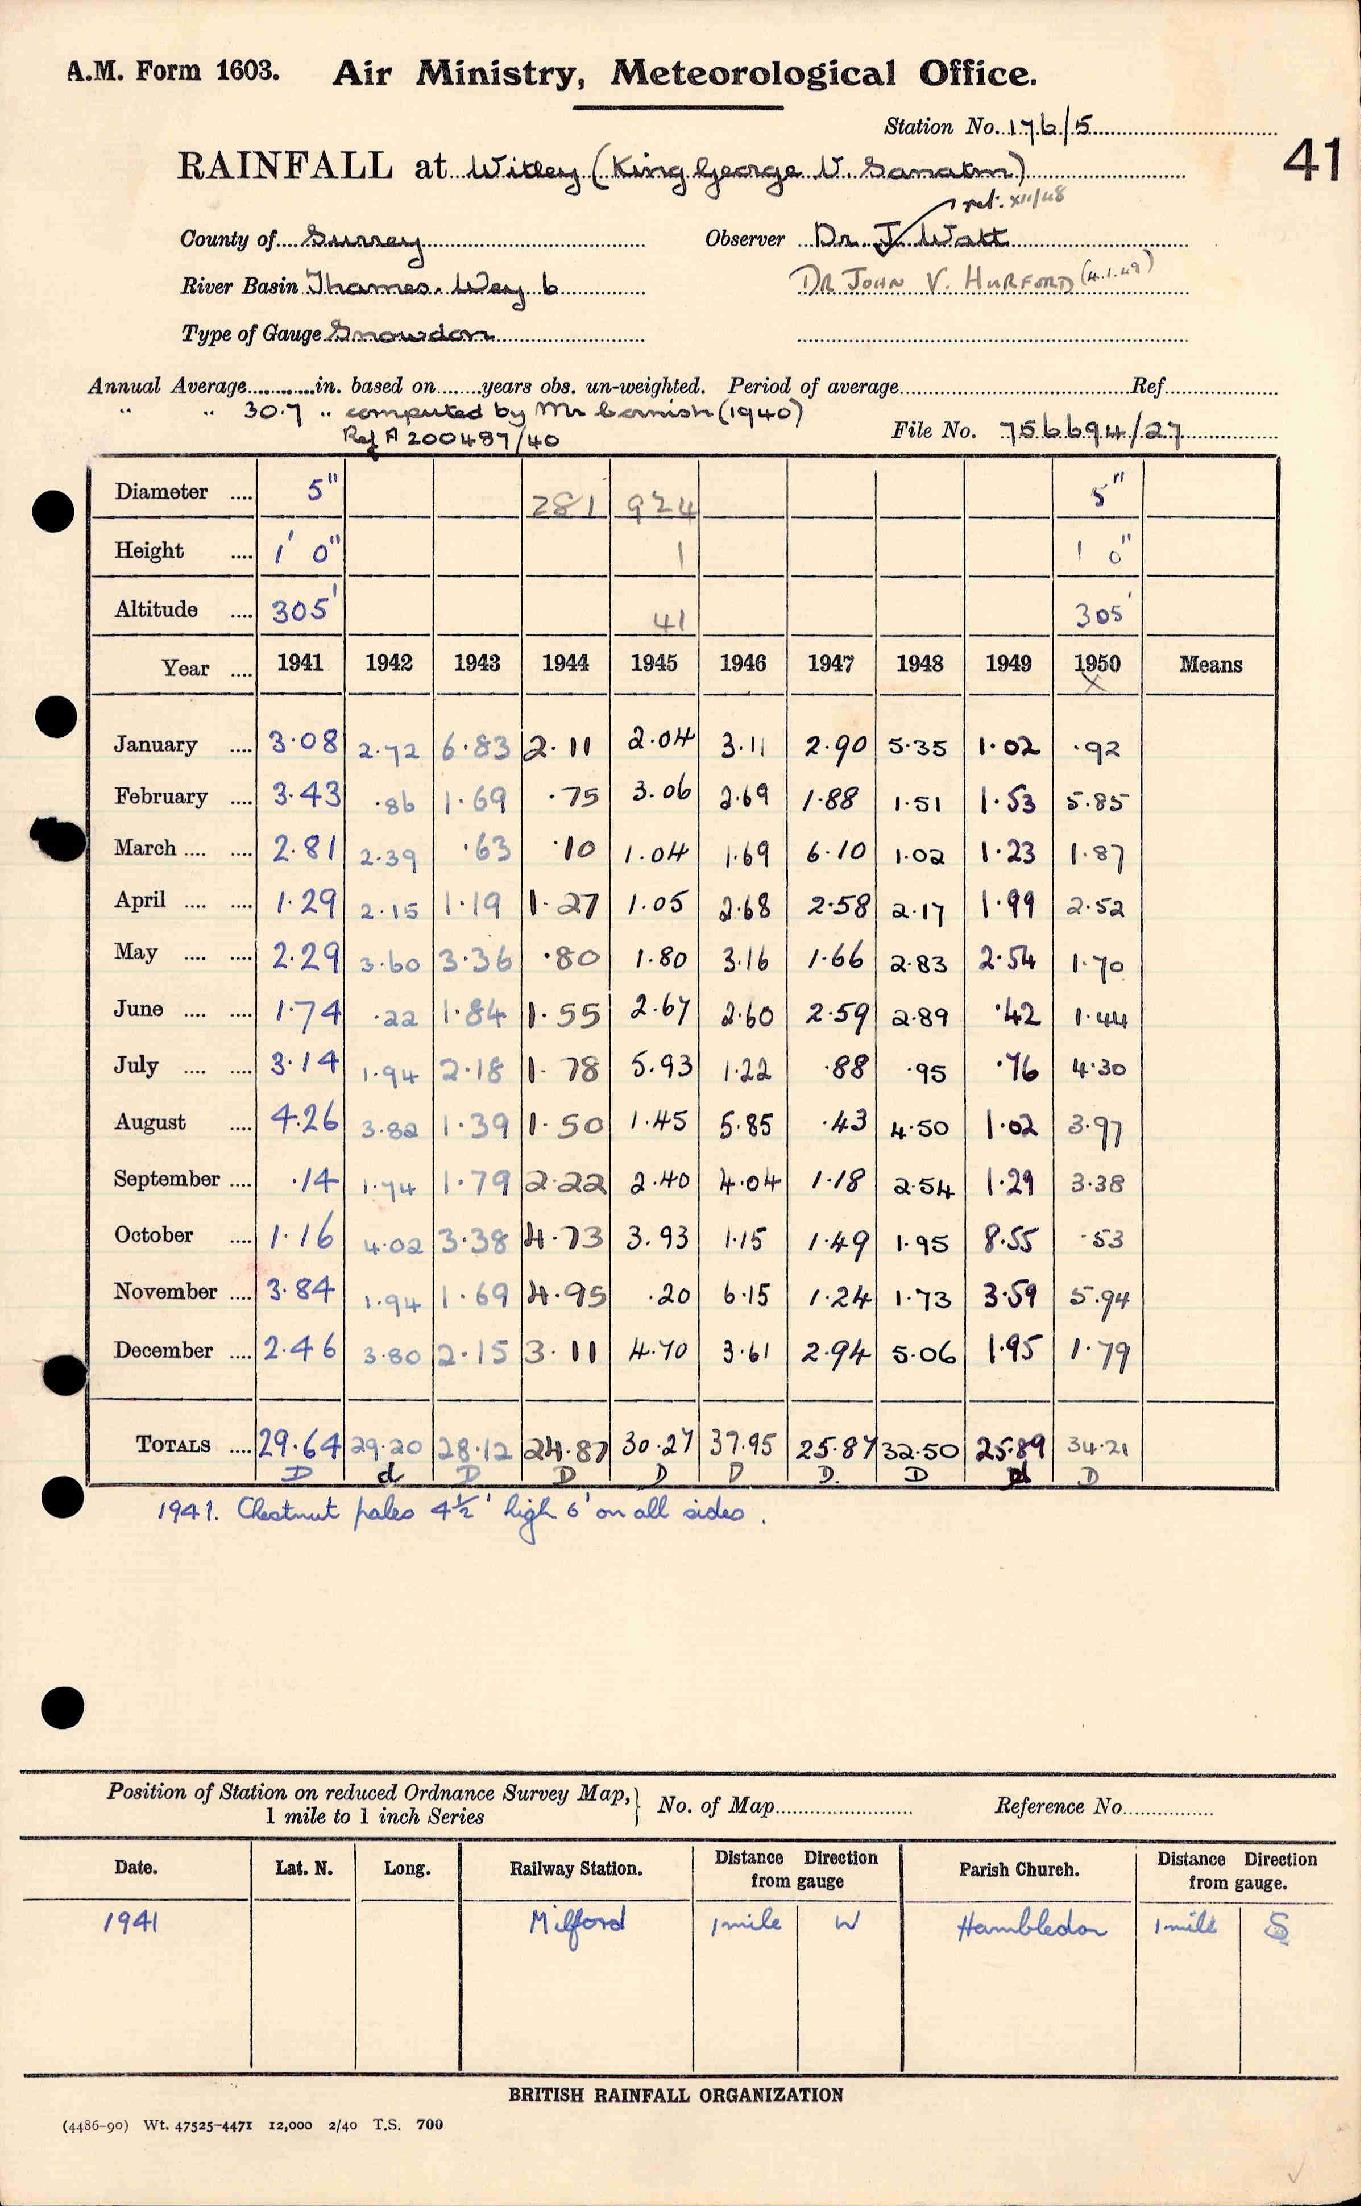 A.M. Form 1603. Air Ministry, Meteorological Office.
Station No. 176/5
41
RAINFALL at Witley (King George V. Sanatm)
ret. XII/48
County of Surrey Observer Dr. J. Watt
River Basin Thames. Wey b DR JOHN V. HURFORD (4.1.49)
Type of Gauge Snowdon
Annual Average............in. based on.......years obs. un-weighted. Period of average.............Ref.............
" " 30.7 " computed by Mr Cornish (1940)
Ref A 200487/40 File No. 756694/27
Diameter .... 5" 281 924 5"
Height .... 1' 0" 1 1 0"
Altitude .... 305' 41 305'
Year .... 1941 1942 1943 1944 1945 1946 1947 1948 1949 1950 Means
X
January .... 3.08 2.72 6.83 2.11 2.04 3.11 2.90 5.35 1.02 .92
February .... 3.43 .86 1.69 .75 3.06 2.69 1.88 1.51 1.53 5.85
March .... .... 2.81 2.39 .63 .10 1.04 1.69 6.10 1.02 1.23 1.87
April .... .... 1.29 2.15 1.19 1.27 1.05 2.68 2.58 2.17 1.99 2.52
May .... .... 2.29 3.60 3.36 .80 1.80 3.16 1.66 2.83 2.54 1.70
June .... .... 1.74 .22 1.84 1.55 2.67 2.60 2.59 2.89 .42 1.44
July .... .... 3.14 1.94 2.18 1.78 5.93 1.22 .88 .95 .76 4.30
August .... 4.26 3.82 1.39 1.50 1.45 5.85 .43 4.50 1.02 3.97
September .... .14 1.74 1.79 2.22 2.40 4.04 1.18 2.54 1.29 3.38
October .... 1.16 4.02 3.38 4.73 3.93 1.15 1.49 1.95 8.55 .53
November .... 3.84 1.94 1.69 4.95 .20 6.15 1.24 1.73 3.59 5.94
December .... 2.46 3.80 2.15 3.11 4.70 3.61 2.94 5.06 1.95 1.79
TOTALS .... 29.64 29.20 28.12 24.87 30.27 37.95 25.87 32.50 25.89 34.21
D d D D D D D. D d D
1941. Chestnut pales 4½' high 6' on all sides.
Position of Station on reduced Ordnance Survey Map, } No. of Map............ Reference No............
1 mile to 1 inch Series
Date. Lat. N. Long. Railway Station. Distance Direction from gauge Parish Church. Distance Direction from gauge.
1941 Milford 1 mile W Hambledon 1 mile S
BRITISH RAINFALL ORGANIZATION
(4486-90) Wt. 47525-4471 12,000 2/40 T.S. 700